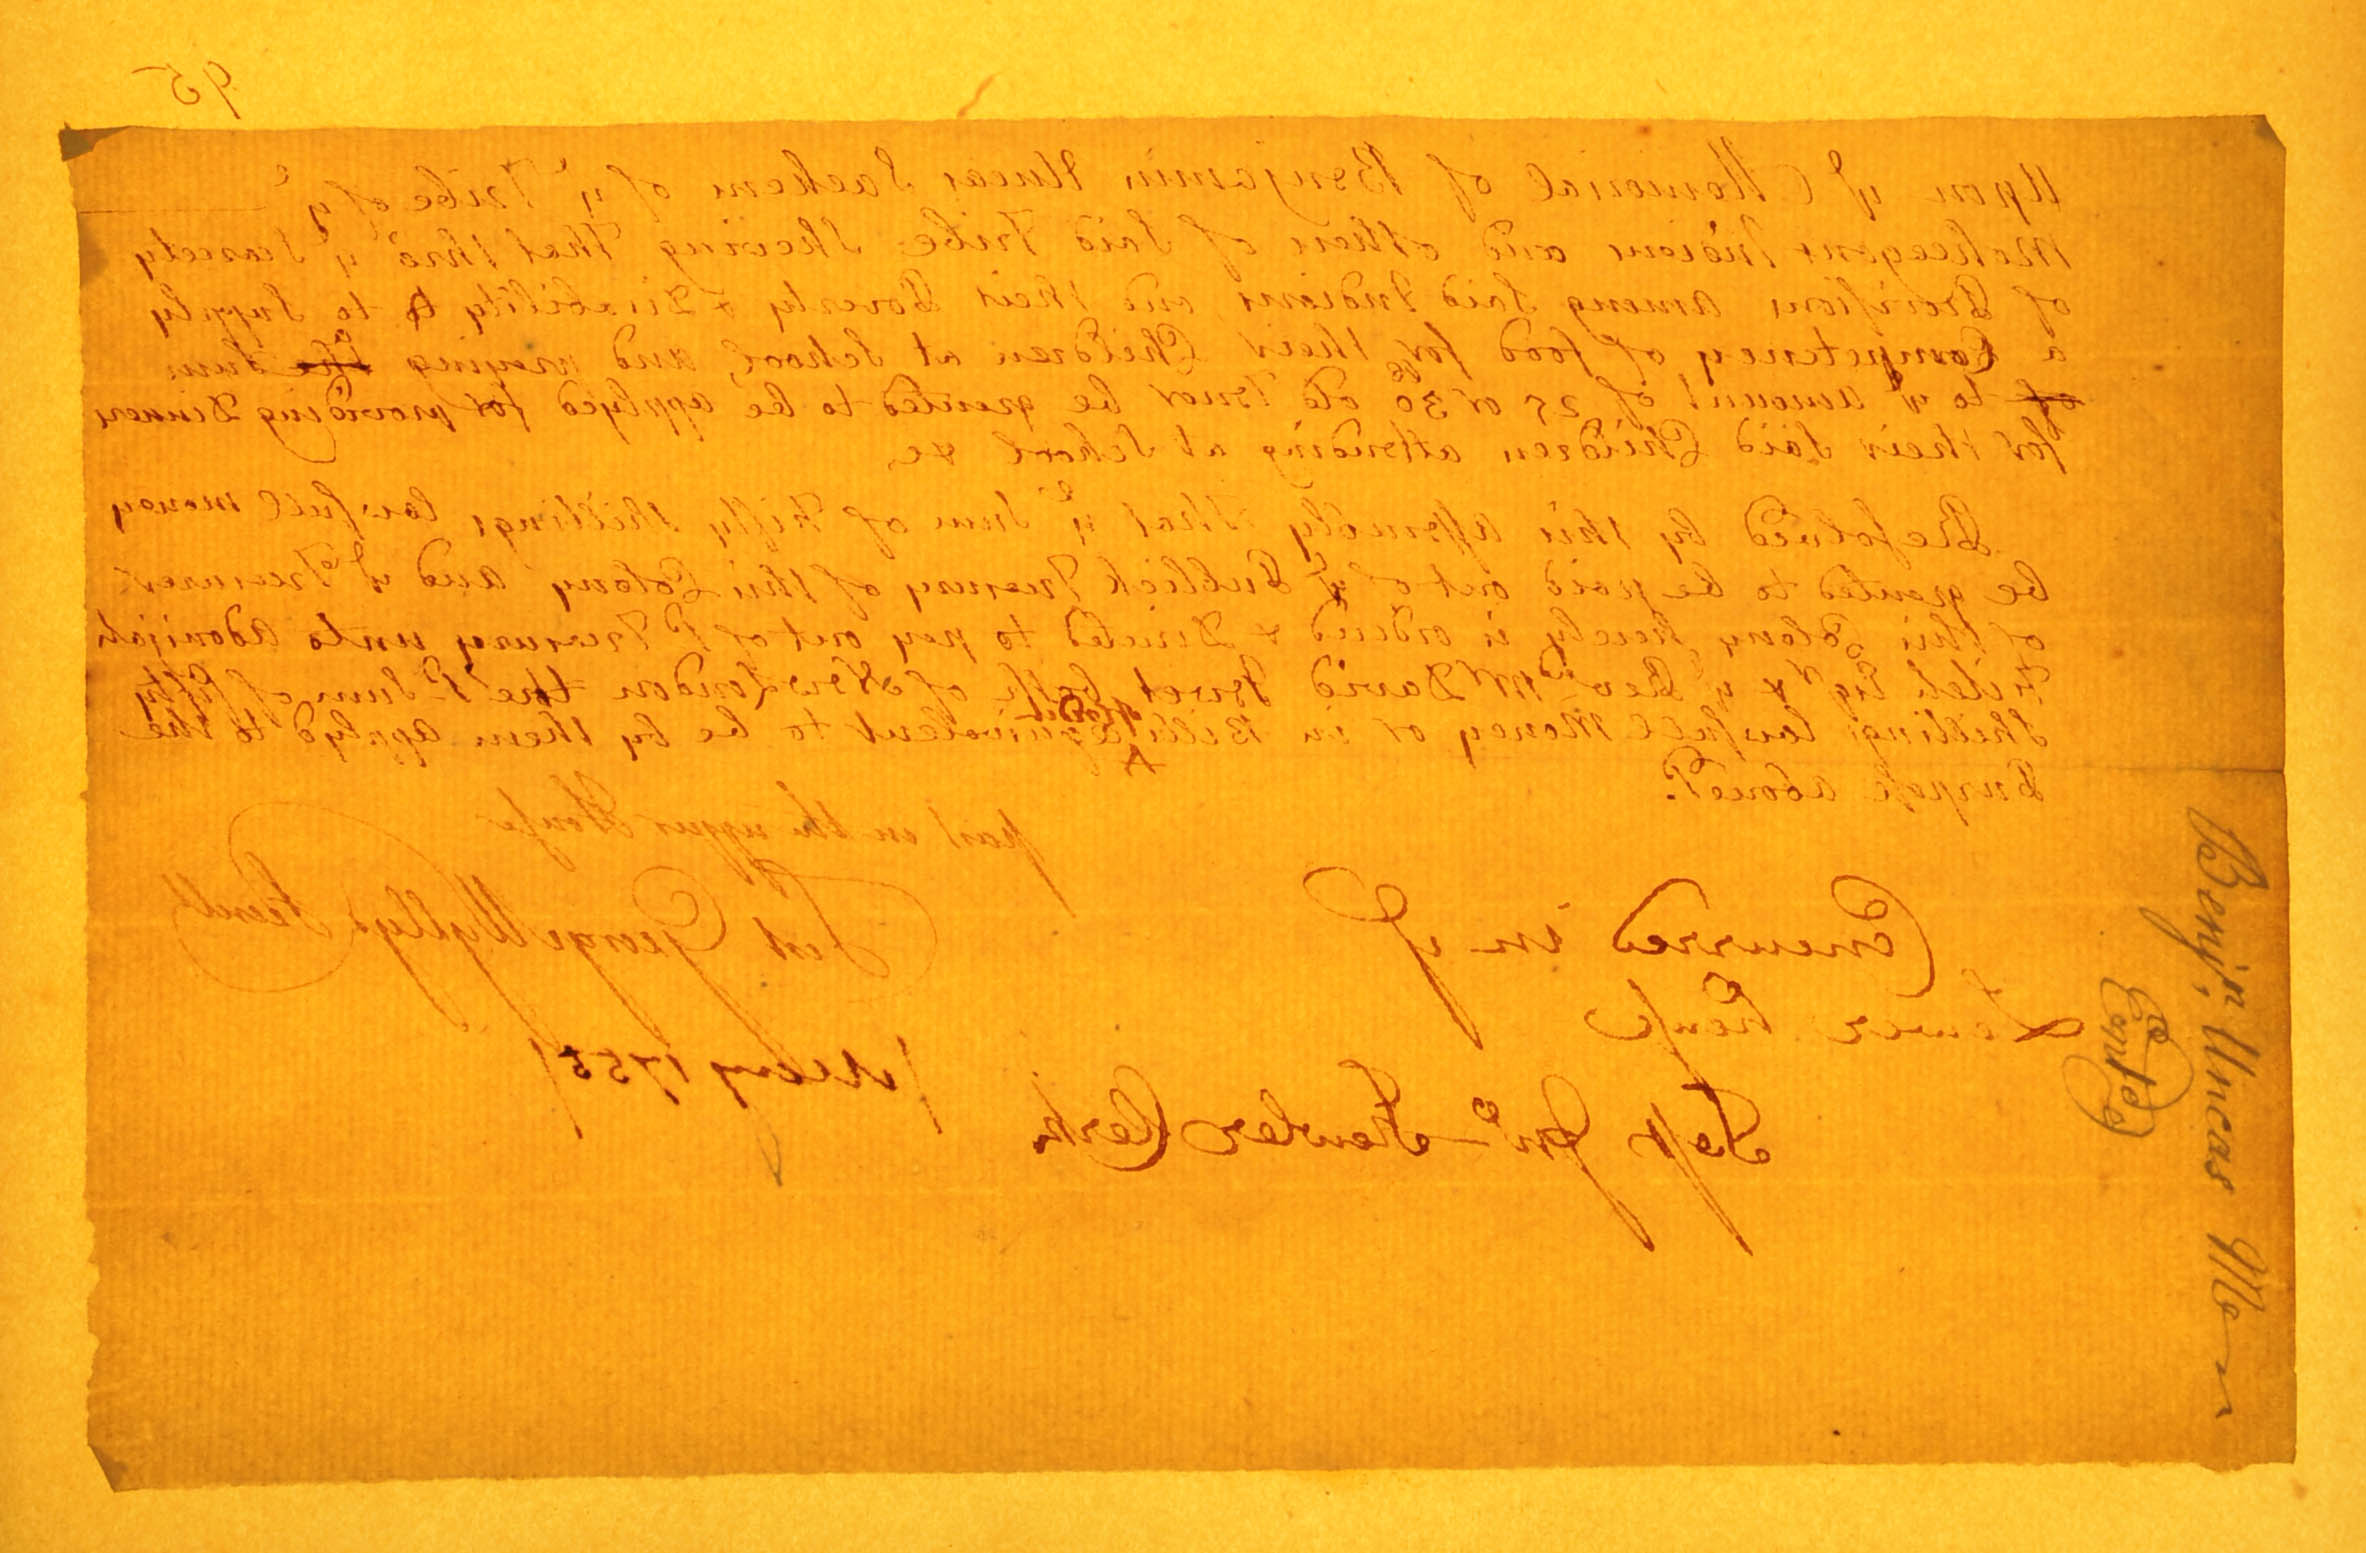 95
Upon ye Memorial of Benjamin Uncas Sachem of ye Tribe of ye
Moheegan Indians and others of said Tribe Shewing that thrô ye Scarcity
of Provisions among said Indians and their Poverty & Inability to to Supply
a Competency of food for their Children at School, and praying the a Sum
of to ye amount of 25 or 30 £ old Tenor be granted to be applyed for providing Dinners
for their said Children attending at School &c
Resolved by this Assembly that ye Sum of Fifty Shillings lawfull money
be granted to be paid out of ye Publick Treasury of this Colony and ye Treasurer
of this Colony hereby is ordered & Directed to pay out of sd Treasury unto Adonijah
Fitch Esqr & ye Revd Mr David Jewet both of New London the sd Sum of fifty
Shillings lawfull Money or in Bills of Credit equivalent to be by them applyd to the
Purpose aboves.d
past in the upper House
Test George Wyllys Secret.
Concurred in ye
Lower house
Test Jn.o Fowler Clerk
May 1755
Benj.n Uncas Me
Ent.d